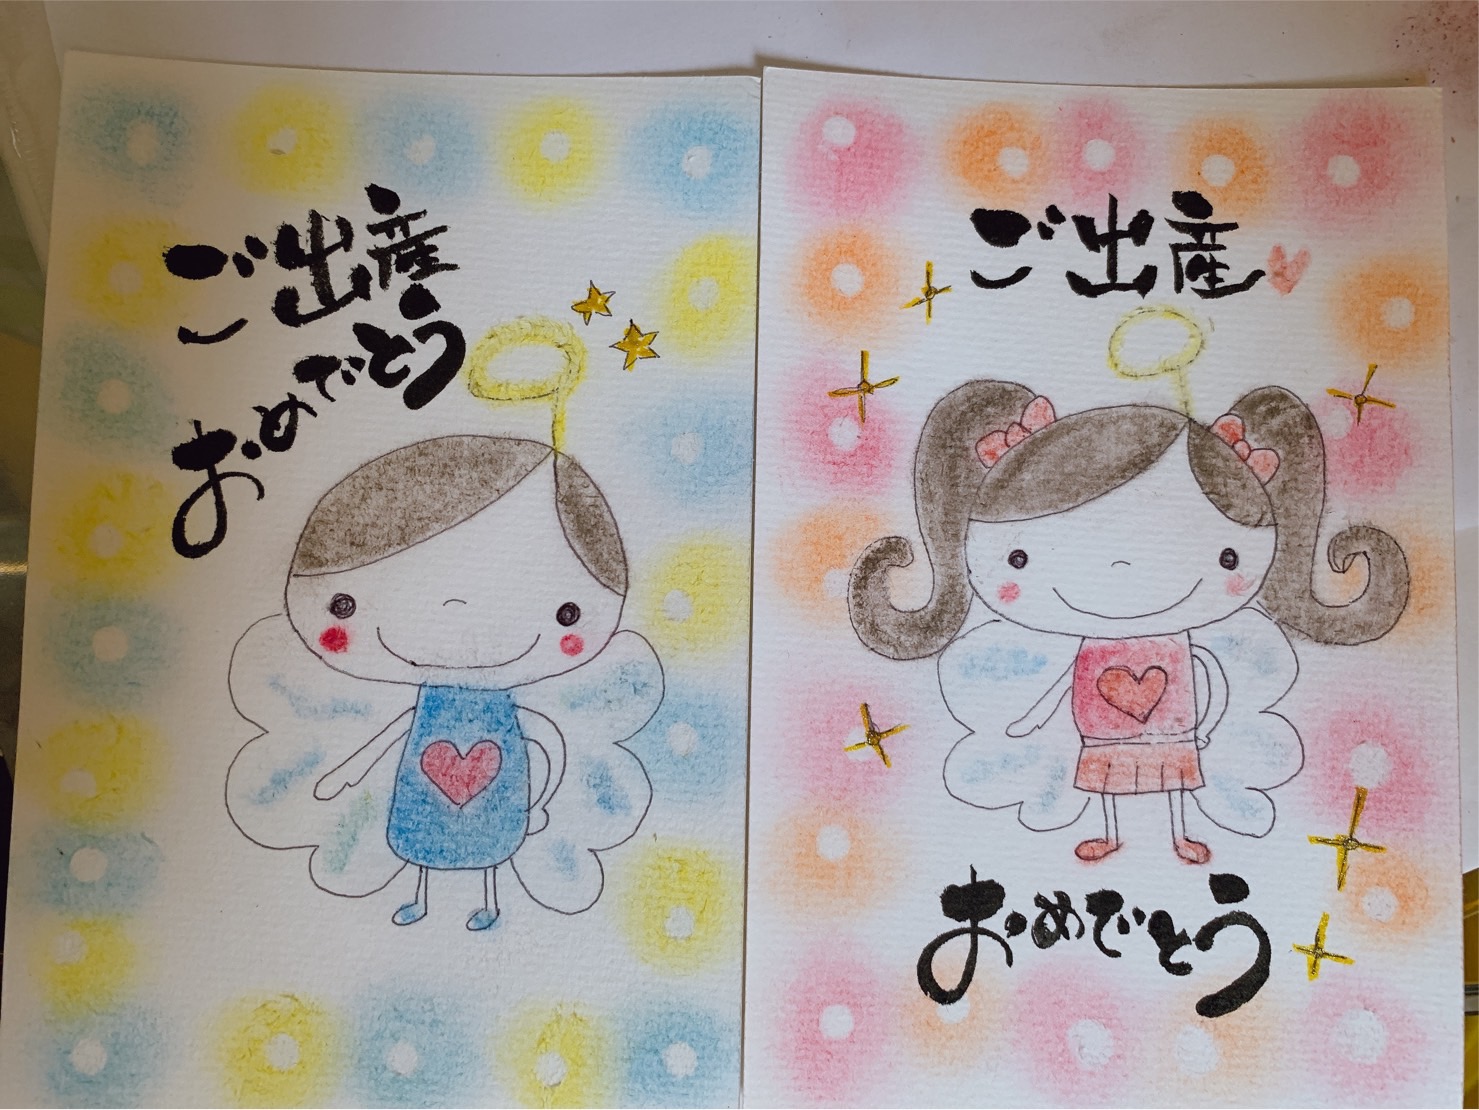 ご出産
おめでとう
ご出産
おめでとう